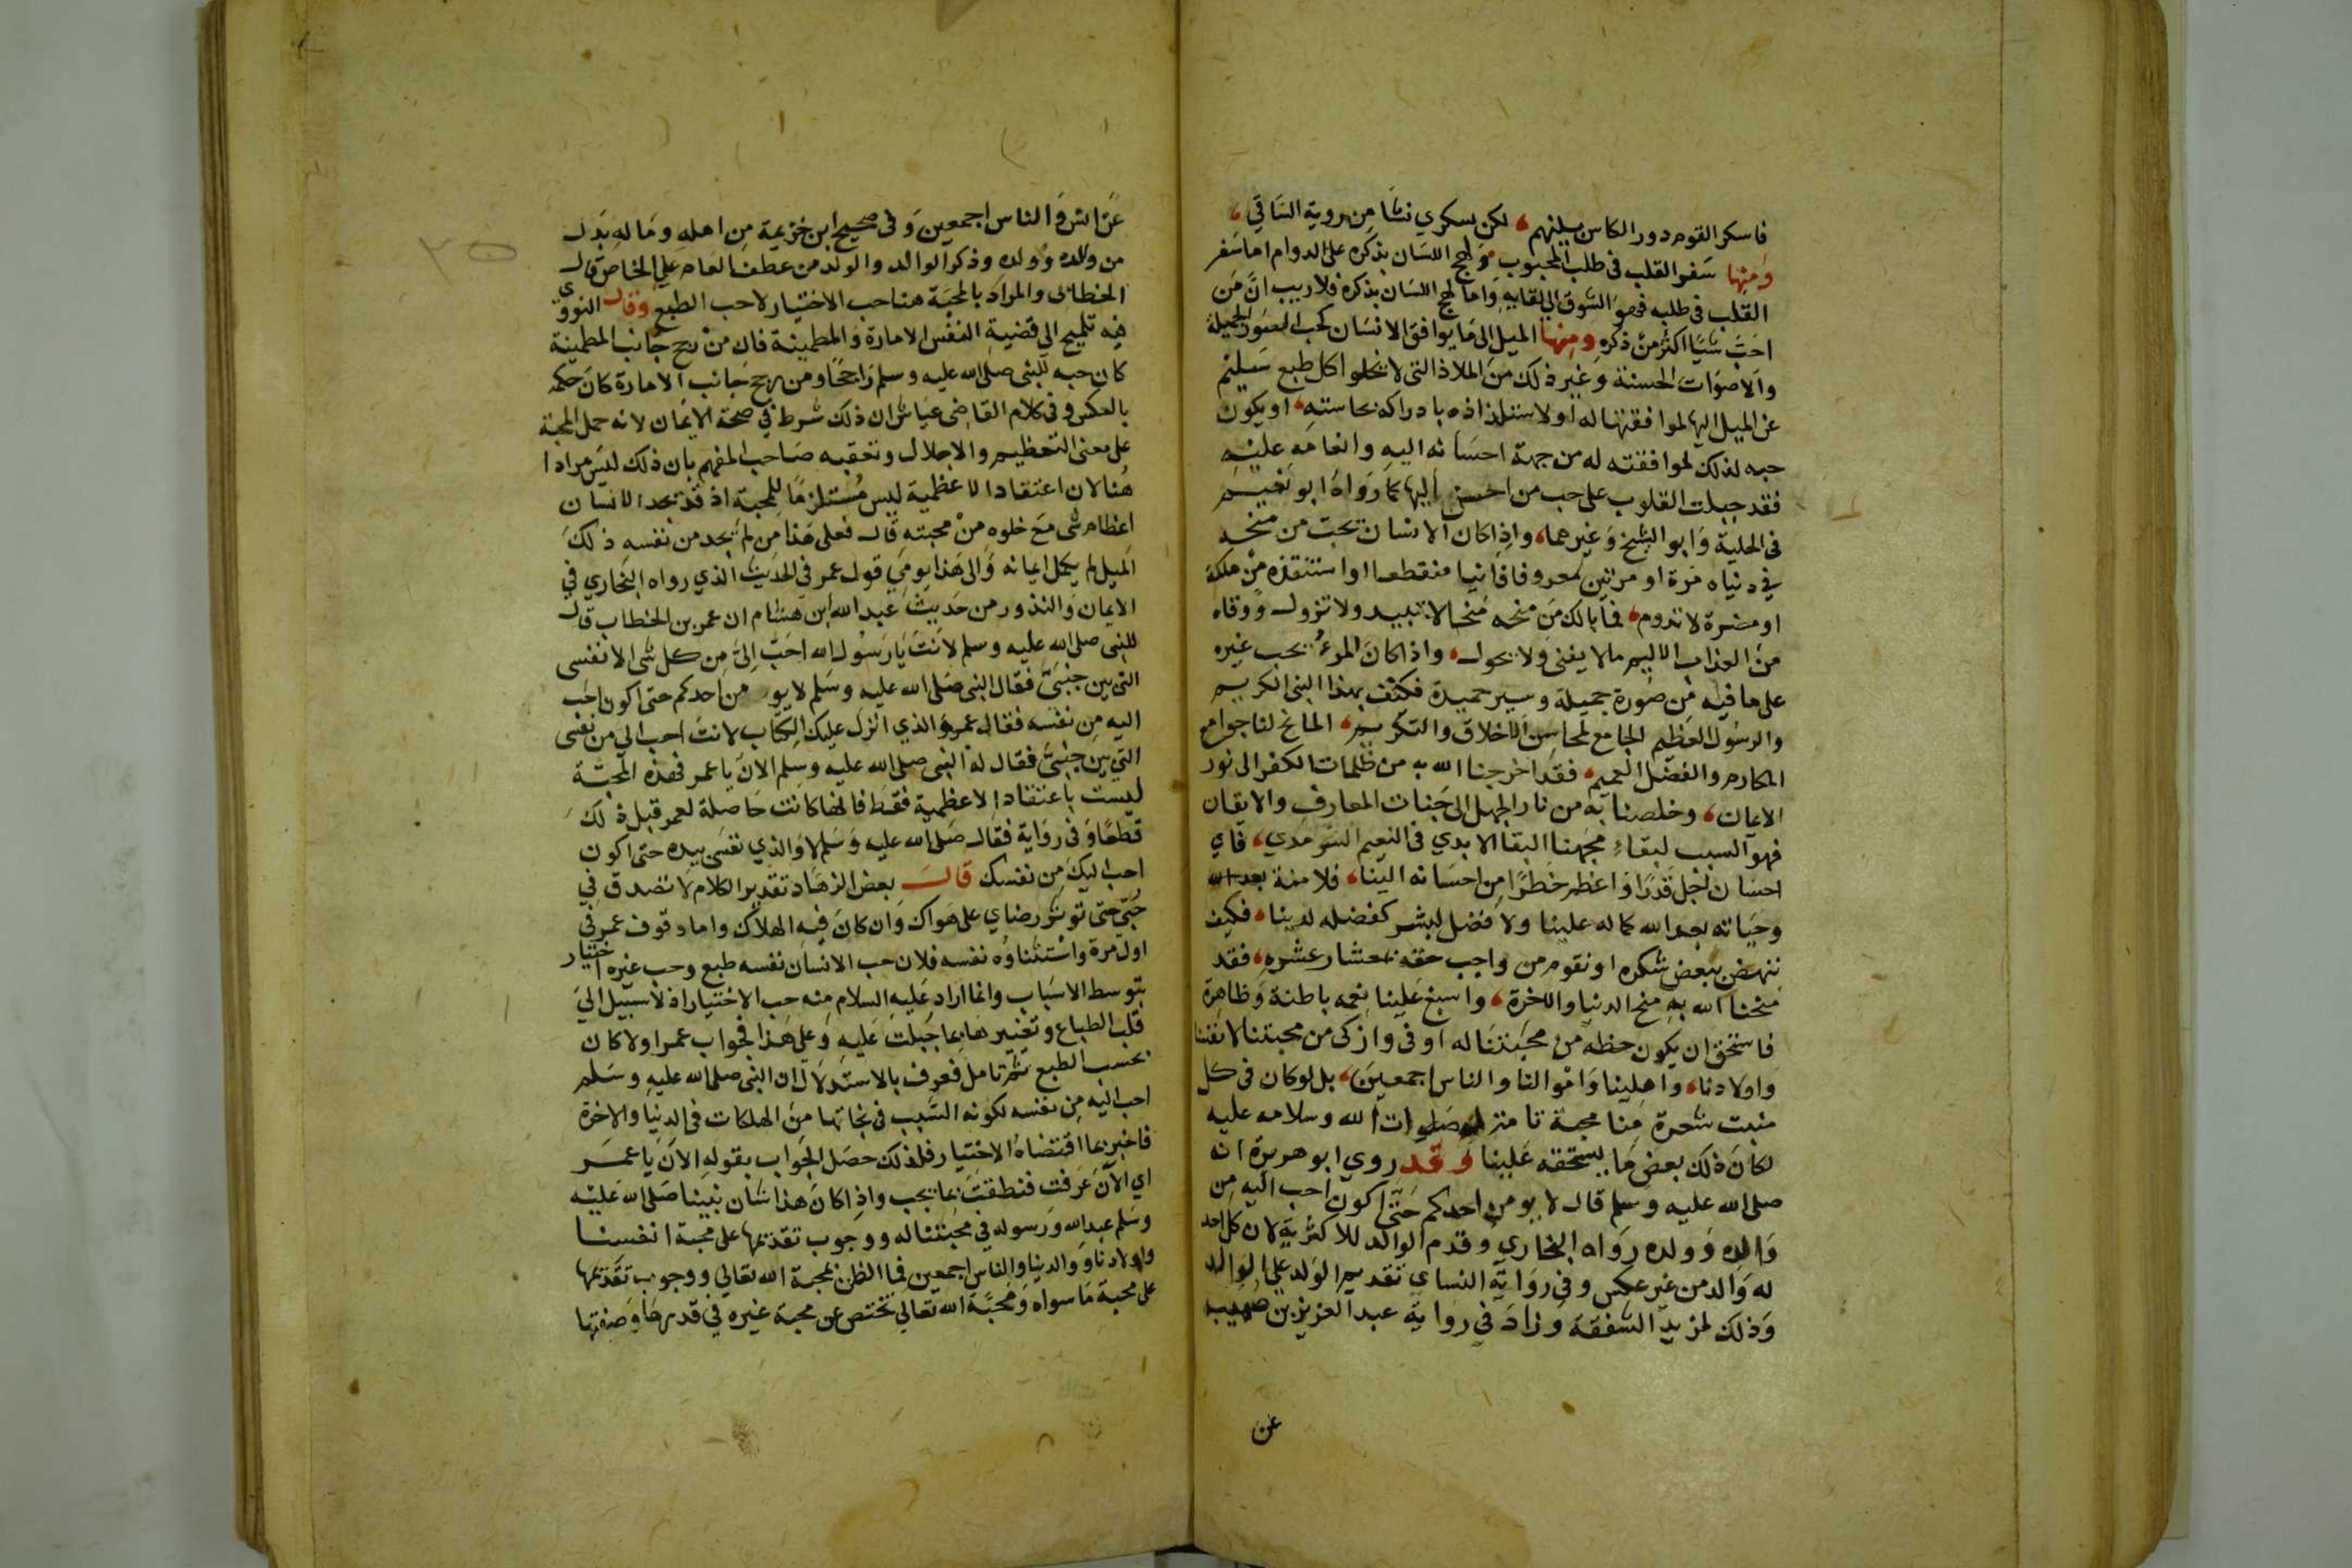 فاسكر القوم دور الكاس بينهم، لكن سكري نشا من روية الساقي،
ومنها سفر القلب في طلب المحبوب ولهج اللسان بذكره على الدوام اما سفر
القلب في طلبه فهو الشوق الي لقايه واما لهج اللسان بذكره فلا ريب ان من
احب شيا اكثر من ذكره ومنها الميل الى ما يوافق الانسان كحب الصور الجميلة
والاصوات الحسنة وغير ذلك من الملاذ التي لا يخلوا كل طبع سليم
عن الميل اليها لموافقتها له او لاستلذاذه بادراكه بحاسته، او يكون
حبه لذلك لموافقته له من جهة احسانه اليه وانعامه عليه
فقد جبلت القلوب على حب من احسن اليها كما رواه ابو نعيم
في الحلية وابو الشيخ وغيرهما، واذا كان الانسان يحب من منحه
في دنياه مرة او مرتين معروفا فانيا منقطعا او استنقذه من هلكة
او مضرة لا تدوم، فما بالك من منحه منحا لا تبيد ولا تزول ووقاه
من العذاب الاليم ما لا يفنى ولا يحول، واذا كان المرء يحب غيره
على ما فيه من صورة جميلة وسيرة حميدة فكيف بهذا النبي الكريم
والرسول العظيم الجامع لمحاسن الاخلاق والتكريم، المانح لنا جوامع
المكارم والفضل العميم، فقد اخرجنا الله به من ظلمات الكفر الى نور
الايمان، وخلصنا به من نار الجهل الى جنات المعارف والايقان
فهو السبب لبقاء مهجنا البقا الابدي في النعيم السرمدي، فاي
احسان اجل قدرا واعظم خطرا من احسانه الينا، فلا منة بعد الله
وحياته بعد الله كما له علينا ولا فضل لبشر كفضله لدينا، فكيف
ننهض ببعض شكره او نقوم من واجب حقه بمعشار عشره، فقد
منحنا الله به منح الدنيا والاخرة، واسبغ علينا نعمه باطنة وظاهرة
فاستحق ان يكون حظه من محبتنا له اوفى وازكى من محبتنا لانفسنا
واولادنا، واهلينا واموالنا والناس اجمعين، بل لو كان في كل
منبت شعرة منا محبة تامة له صلوات الله وسلامه عليه
لكان ذلك بعض ما يستحقه علينا وقد روي ابو هريرة انه
صلى الله عليه وسلم قال لا يومن احدكم حتى اكون احب اليه من
والده وولده رواه البخاري وقدم الوالد للاكثرية لان كل احد
له والد من غير عكس وفي رواية النساي تقديم الولد علي الوالد
وذلك لمزيد الشفقة وزاد في رواية عبد العزيز بن صهيب
عن
عن انس والناس اجمعين وفي صحيح ابن خزيمة من اهله وماله بدل
من والده وولده وذكر الوالد والولد من عطف العام علي الخاص قال
الخطابي والمراد بالمحبة هنا حب الاختيار لا حب الطبع وقال النووي
فيه تلميح الى قضية النفس الامارة والمطمينة فان من رجح جانب المطمينة
كان حبه للنبي صلى الله عليه وسلم راجحا ومن رجح جانب الامارة كان حكمه
بالعكس وفي كلام القاضي عياض ان ذلك شرط في صحة الايمان لانه حمل المحبة
على معنى التعظيم والاجلال وتعقبه صاحب المفهم بان ذلك ليس مرادا
هنا لان اعتقاد الاعظمية ليس مستلزما للمحبة اذ قد يجد الانسان
اعظام شي مع خلوه من محبته قال فعلى هذا من لم يجد من نفسه ذلك
الميل لم يكمل ايمانه والى هذا يومي قول عمر في الحديث الذي رواه البخاري في
الايمان والنذور من حديث عبد الله ابن هشام ان عمر بن الخطاب قال
للنبي صلى الله عليه وسلم لانت يا رسول الله احب الي من كل شي الا نفسي
التي بين جنبي فقال النبي صلى الله عليه وسلم لا يومن احدكم حتى اكون احب
اليه من نفسه فقال عمر والذي انزل عليك الكتاب لانت احب الي من نفسي
التي بين جنبي فقال له النبي صلى الله عليه وسلم الان يا عمر فهذه المحبة
ليست باعتقاد الاعظمية فقط فانها كانت حاصلة لعمر قبل ذلك
قطعا وفي رواية فقال صلى الله عليه وسلم لا والذي نفسي بيده حتى اكون
احب اليك من نفسك قال بعض الزهاد تقدير الكلام لا تصدق في
حبي حتى توثر رضاي على هواك وان كان فيه الهلاك واما وقوف عمر في
اول مرة واستثناوه نفسه فلان حب الانسان نفسه طبع وحب غيره اختيار
بتوسط الاسباب وانما اراد عليه السلام منه حب الاختيار اذ لا سبيل الي
قلب الطباع وتغييرها عما جبلت عليه وعلى هذا فجواب عمر اولا كان
بحسب الطبع ثم تامل فعرف بالاستدلال ان النبي صلى الله عليه وسلم
احب اليه من نفسه لكونه السبب في نجاتها من الهلكات في الدنيا والاخرة
فاخبر بما اقتضاه الاختيار فلذلك حصل الجواب بقوله الان يا عمر
اي الان عرفت فنطقت بما يجب واذا كان هذا شان نبينا صلى الله عليه
وسلم عبد الله ورسوله في محبتنا له ووجوب تقدمها على محبة انفسنا
واولادنا ووالدينا والناس اجمعين فما الظن بمحبة الله تعالي ووجوب تقدمها
على محبة ما سواه ومحبة الله تعالي تختص عن محبة غيره في قدرها وصفتها